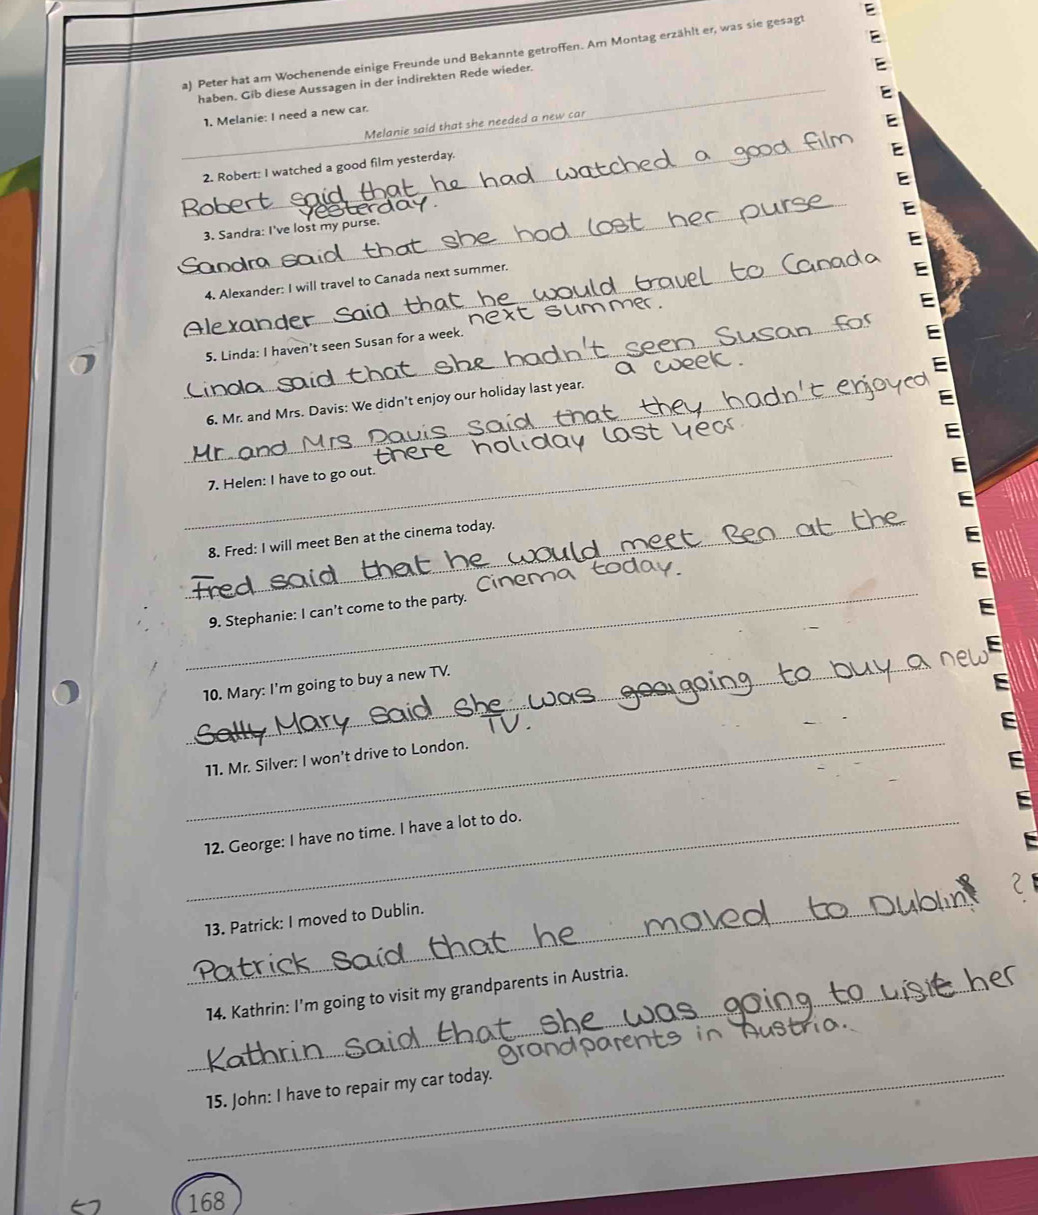 a) Peter hat am Wochenende einige Freunde und Bekannte getroffen. Am Montag erzählt er, was sie gesagt
haben. Gib diese Aussagen in der indirekten Rede wieder.
1. Melanie: I need a new car.
Melanie said that she needed a new car
2. Robert: I watched a good film yesterday.
Robert said that he had watched a good film
yesterday.
3. Sandra: I've lost my purse.
Sandra said that she had lost her purse
4. Alexander: I will travel to Canada next summer.
Alexander said that he would travel to Canada
next summer.
5. Linda: I haven't seen Susan for a week.
Linda said that she hadn't seen Susan for
a week.
6. Mr. and Mrs. Davis: We didn't enjoy our holiday last year.
Mr. and Mrs Davis said that they hadn't enjoyed
there holiday last year.
7. Helen: I have to go out.
8. Fred: I will meet Ben at the cinema today.
Fred said that he would meet Ben at the
cinema today.
9. Stephanie: I can't come to the party.
10. Mary: I'm going to buy a new TV.
Sally Mary said she was going to buy a new
TV.
11. Mr. Silver: I won't drive to London.
12. George: I have no time. I have a lot to do.
13. Patrick: I moved to Dublin.
Patrick said that he moved to Dublin ?
14. Kathrin: I'm going to visit my grandparents in Austria.
Kathrin said that she was going to visit her
grandparents in Austria.
15. John: I have to repair my car today.
168